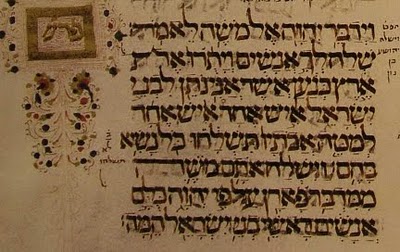 וידבר יהוה אל משה לאמר
שלח לך אנשים ויתרו את
ארץ כנען אשר אני נתן לבני
ישראל איש אחד איש אחד
למטה אבתיו תשלחו כל נשיא
בהם וישלח אתם משה
ממדבר פארן על פי יהוה כלם
אנשים ראשי בני ישראל המה
וישלח
יהושע
בן
נון
פרש